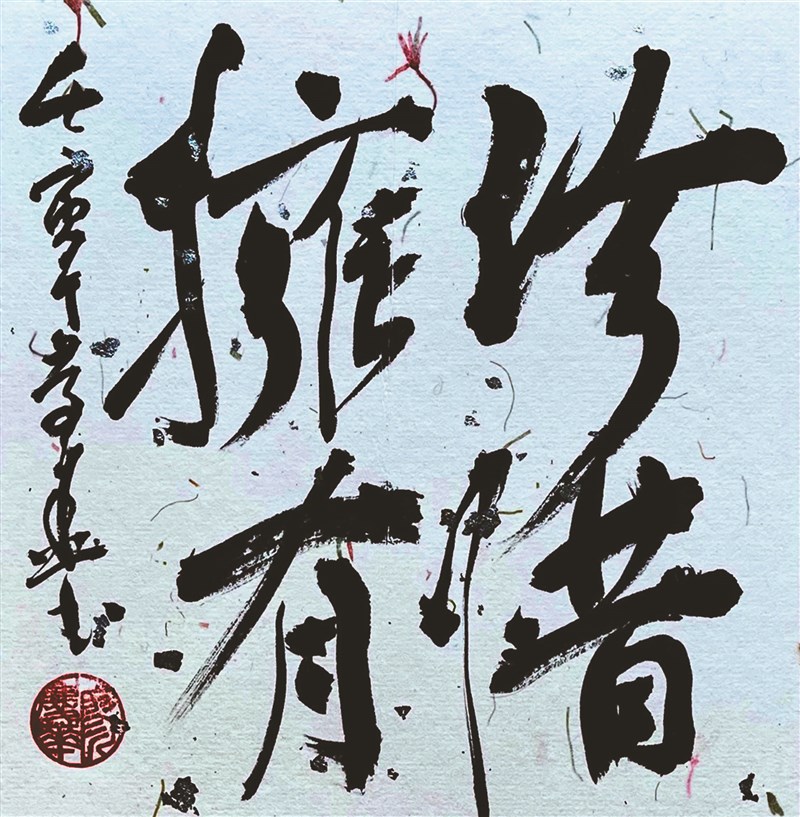 珍惜
擁有
壬寅年
书